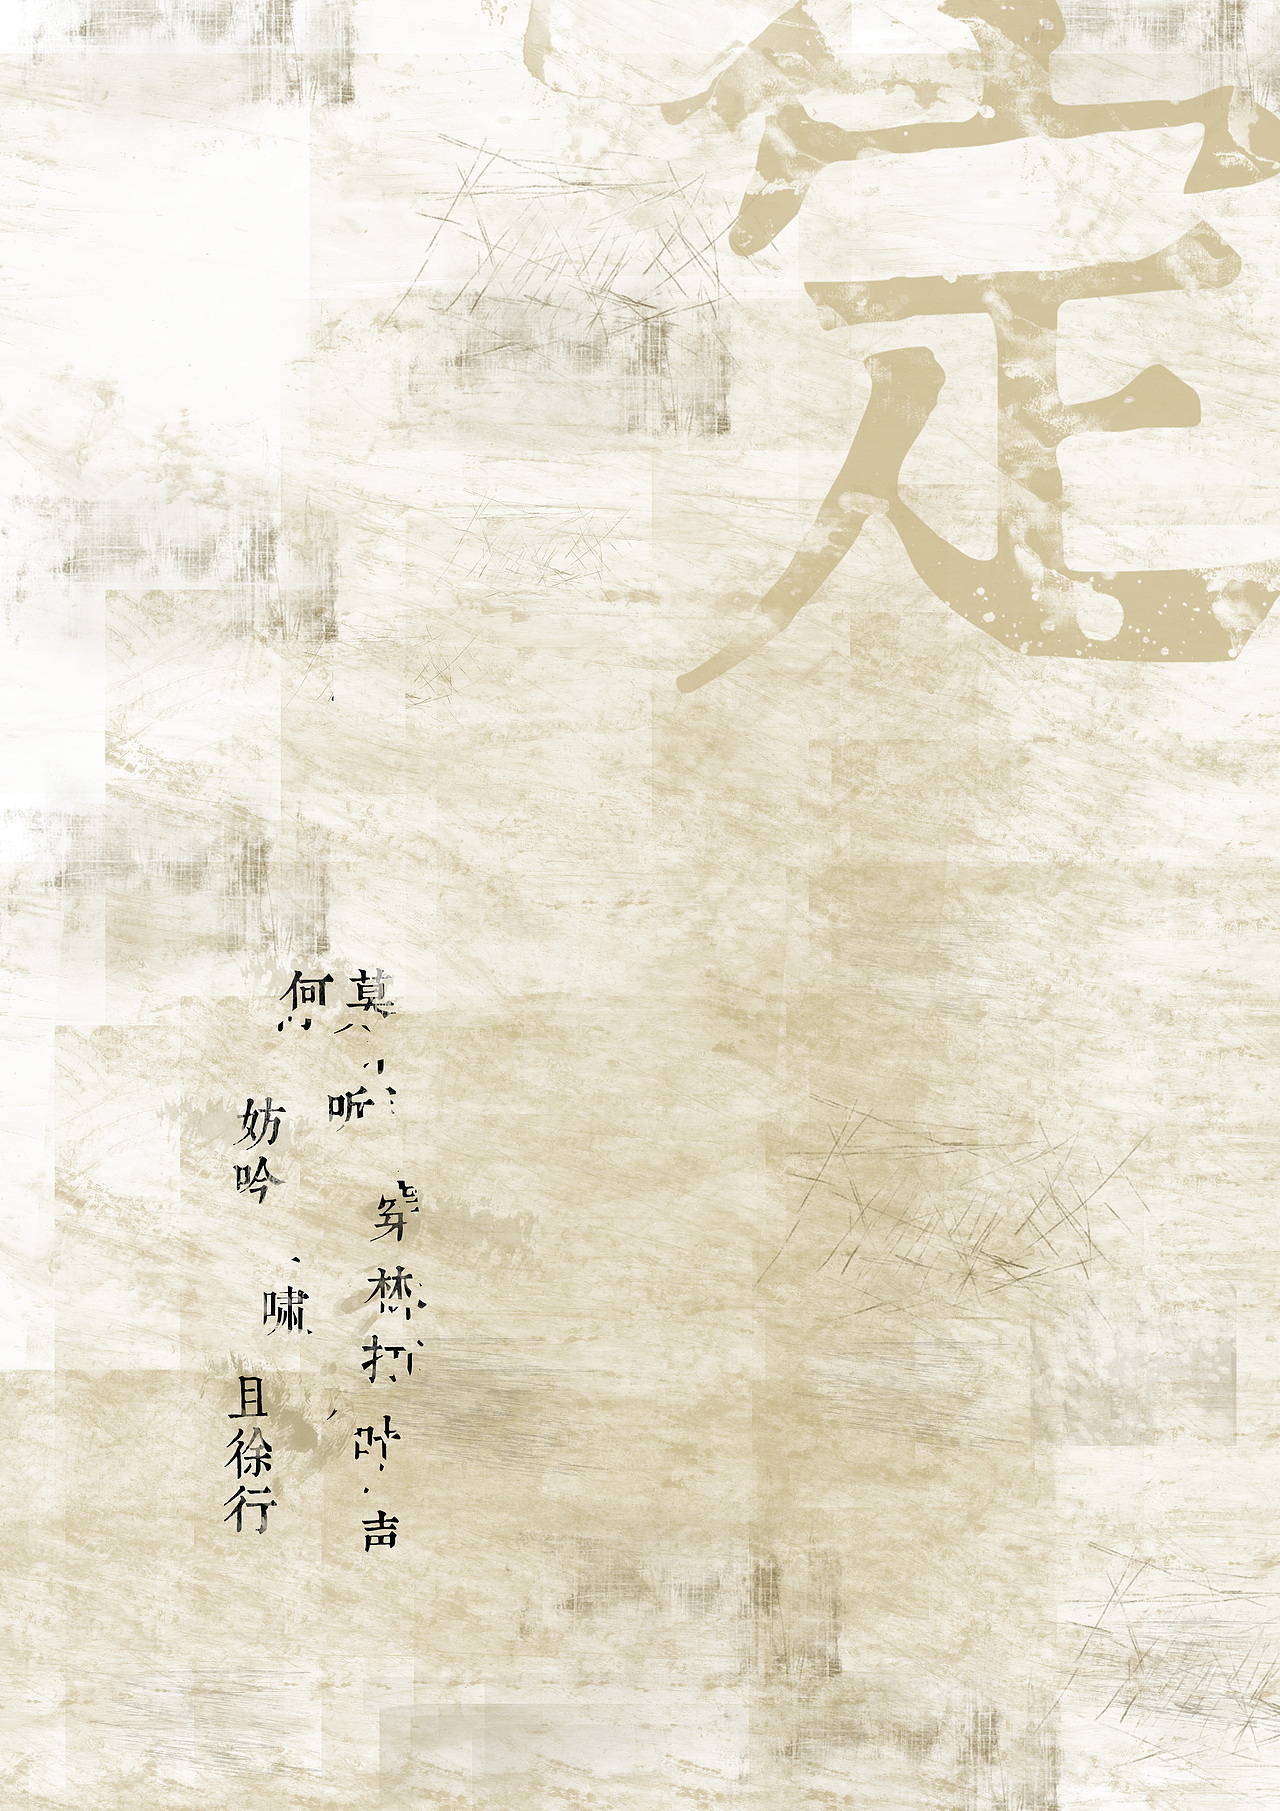 定
莫听穿林打叶声
何妨吟啸且徐行